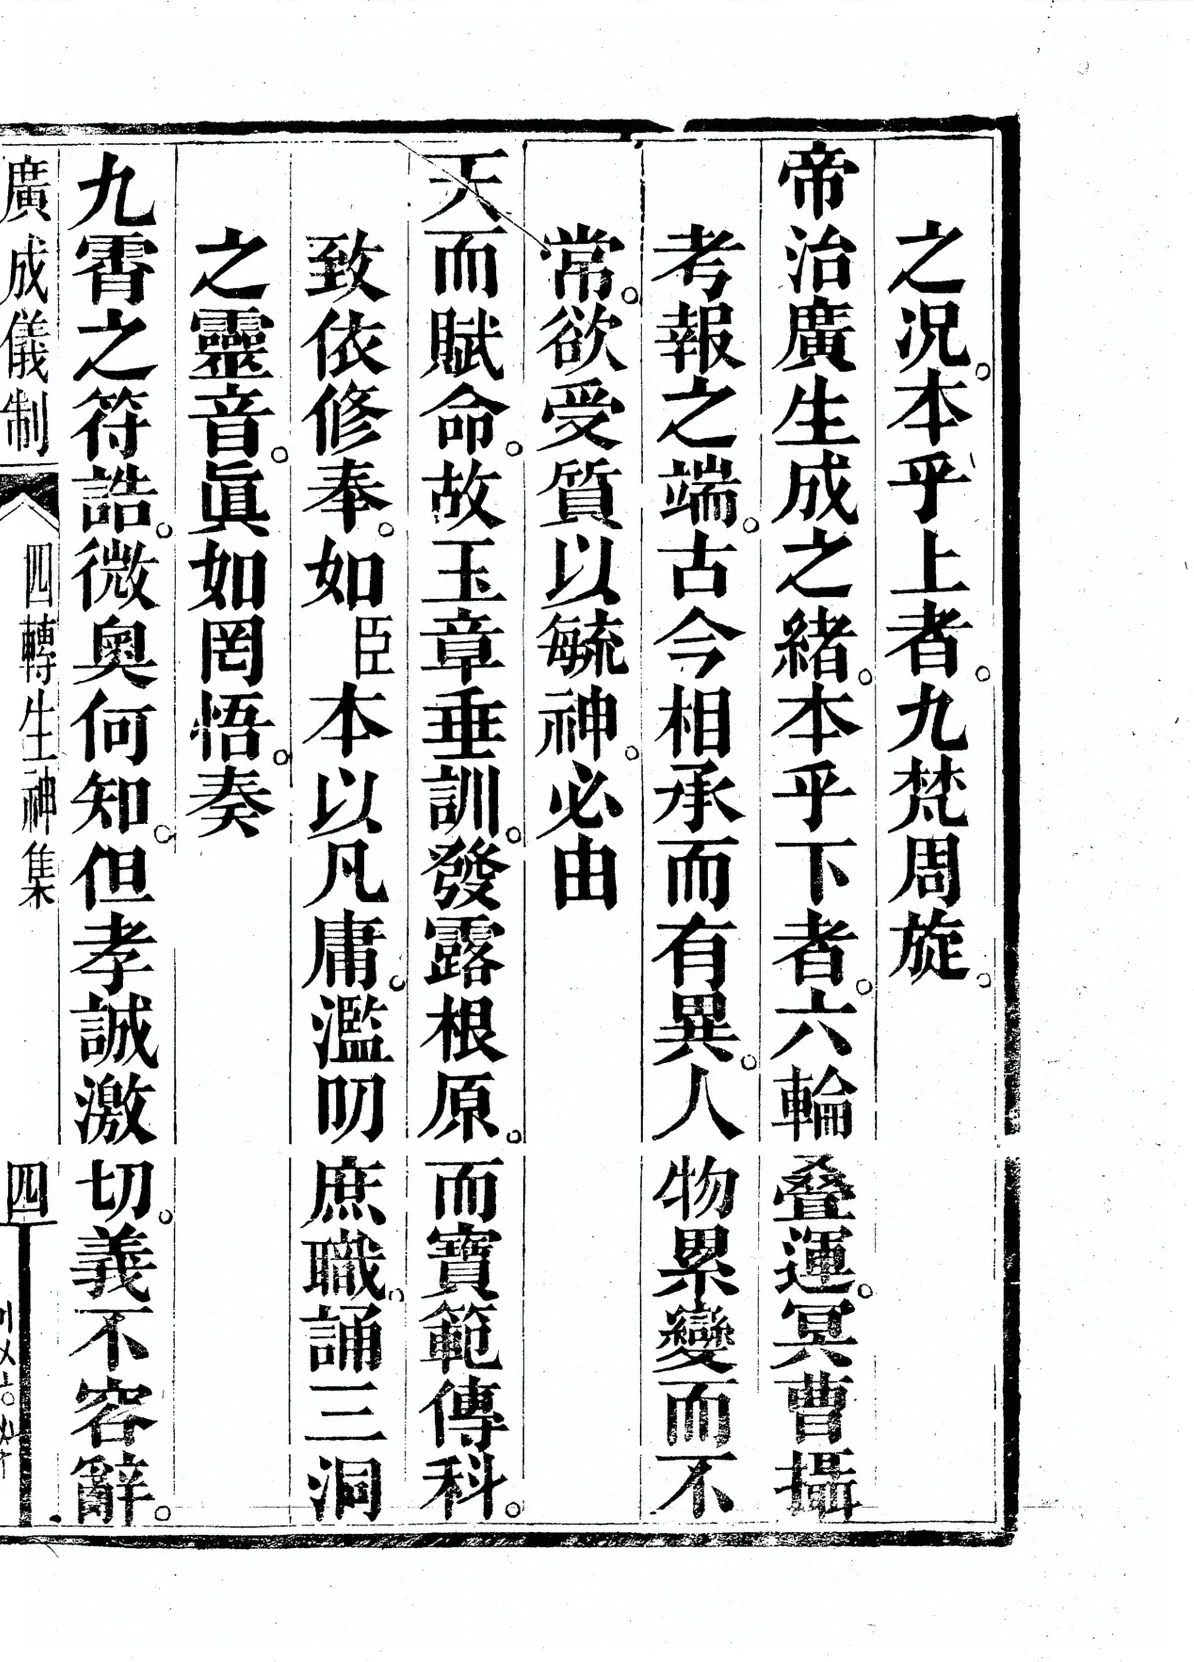 之况。本乎上者。九梵周旋。
帝治廣生成之緒。本乎下者。六輪叠運。冥曹攝
考報之端。古今相承而有異。人物累變而不
常。欲受質以毓神。必由
天而賦命。故玉章垂訓。發露根原。而寶範傳科。
致依修奉。如臣本以凡庸。濫叨庶職。誦三洞
之靈音。眞如罔悟。奏
九霄之符誥。微奧何知。但孝誠激切。義不容辭。
廣成儀制 四轉生神集 四